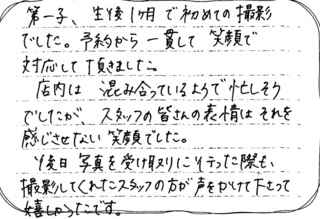 第一子、生後1ヶ月で初めての撮影
でした。予約から一貫して笑顔で
対応して頂きました。
店内は混み合っているようで忙しそう
でしたが、スタッフの皆さんの表情はそれを
感じさせない笑顔でした。
後日写真を受け取りに行った際も、
撮影してくれたスタッフの方が声をかけて下さって
嬉しかったです。